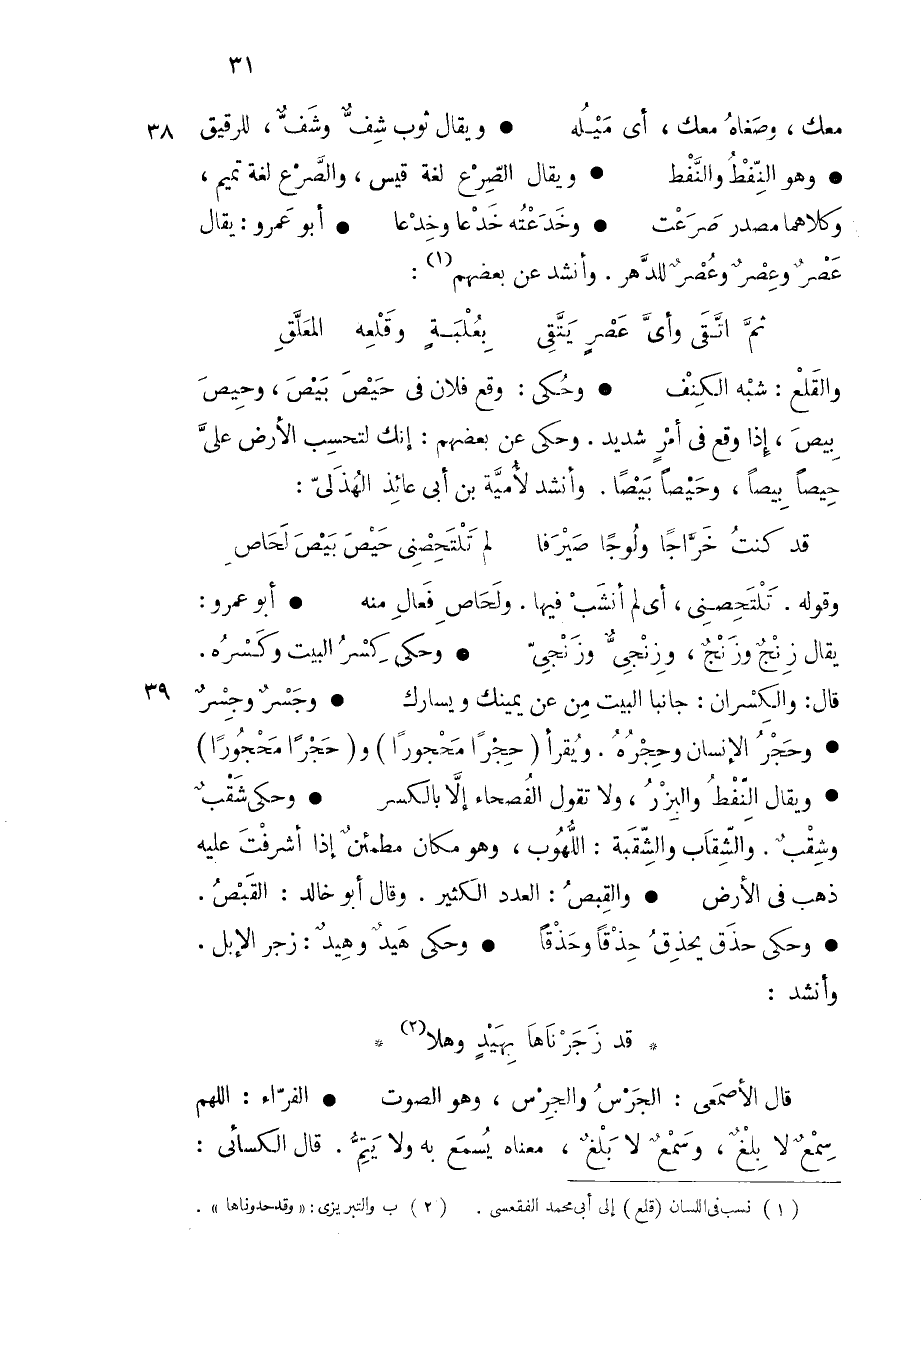 ٣١
معك ، وصَغاهُ معك ، أى مَيْلُه ● ويقال ثوب شِفٌّ وشَفٌّ ، للرقيق ٣٨
● وهو النِّفْطُ والنَّفْط ● ويقال الصِّرْع لغة قيس ، والصَّرْع لغة تميم ،
وكلاهما مصدر صَرَعْت ● وخَدَعْتُه خَدْعا وخِدْعا ● أبو عَمرو : يقال
عَصْرٌ وعِصْرٌ وعُصْرٌ للدَّهر . وأنشد عن بعضهم(١) :
ثمَّ اتَّقَى وأىَّ عَصْرٍ يَتَّقِى بِعُلْبَةٍ وقَلْعِه المَعَلَّقِ
والقَلْع : شبْه الكِنْف ● وحُكى : وقع فلان فى حَيْصَ بَيْصَ ، وحِيصَ
بِيصَ ، إذا وقع فى أمْرٍ شديد . وحكى عن بعضهم : إنك لتحسِب الأرض علىَّ
حِيصاً بِيصاً ، وحَيْصاً بَيْصًا . وأنشد لأميَّة بن أبى عائذ الهُذَلىّ :
قد كنتُ خَرَّاجًا ولُوجًا صَيْرَفا لم تَلْتَحِصْنِى حَيْصَ بَيْصَ لَحَاصِ
وقوله . تَلْتَحِصنِى ، أى لم أنشَبْ فيها . ولَحَاصِ فَعالِ منه ● أبو عمرو :
يقال زِنْجٌ وزَنْجٌ ، وزِنْجىٌّ وزَنْجىّ ● وحكى كِسْرُ البيت وكَسْرُه .
قال : والكِسْران : جانبا البيت مِن عن يمينك ويسارك ● وجَسْرٌ وجِسْرٌ ٣٩
● وحَجْرُ الإنسان وحِجْرُهُ . ويُقرأ ( حِجْرًا مَحْجورًا ) و ( حَجْرًا مَحْجُورًا )
● ويقال النِّفْطُ والبِزْرُ ، ولا تقول الفُصحاء إلَّا بالكسر ● وحكى شَقْبٌ
وشِقْبٌ . والشِّقاب والشِّقَبة : اللُّهُوب ، وهو مكان مطمئنٌ إذا أشرفْتَ عليه
ذهب فى الأرض ● والقِبصُ : العدد الكثير . وقال أبو خالد : القَبْصُ .
● وحكى حذَق يحذِقُ حِذْقاً وحَذْقاً ● وحكى هَيْدٌ وهِيدٌ : زجر الإبل .
وأنشد :
* قد زَجَرْنَاهَا بِهَيْدٍ وهلا(٢) *
قال الأصمَعى : الجَرْسُ والجِرْس ، وهو الصوت ● الفرّاء : اللهم
سِمْعٌ لا بِلْغٌ ، وسَمْعٌ لا بَلْغٌ ، معناه يُسمَع به ولا يَتِمُّ . قال الكسائى :
( ١ ) نسب فى اللسان ( قلع ) إلى أبى محمد الفقعسى . ( ٢ ) ب والتبريزى : « وقد حدوناها » .